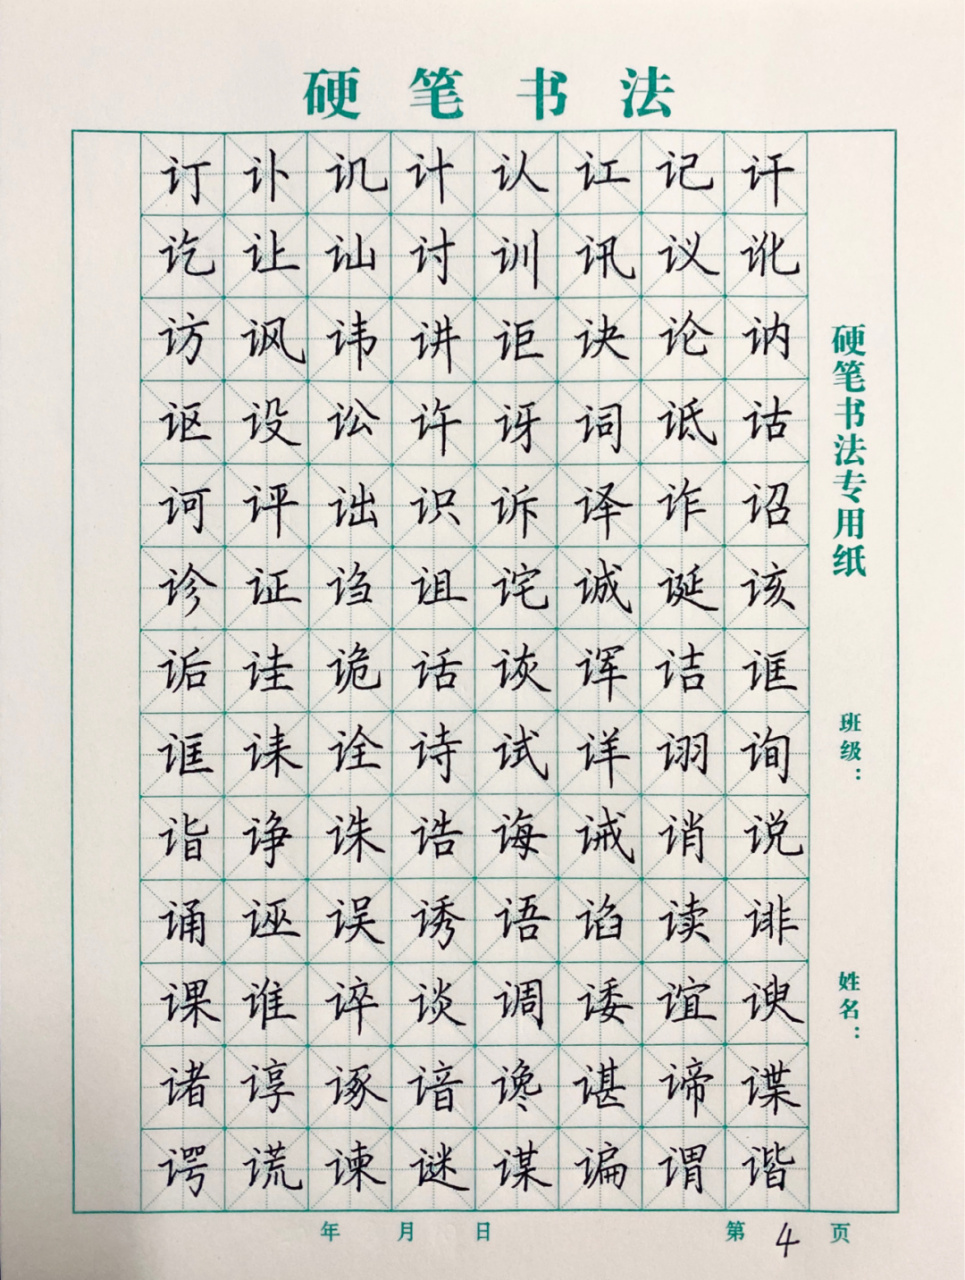 硬笔书法
订讣讥计认讧记讦
讫让讪讨训讯议讹
访讽讳讲讵诀论讷
讴设讼许讶词诋诂
诃评诎识诉译诈诏
诊证诌诅诧诚诞该
诟诖诡话诙诨诘诓
诓诔诠诗试详诩询
诣诤诛诰诲诫诮说
诵诬误诱语谄读诽
课谁谇谈调诿谊谀
诸谆诼谙谗谌谛谍
谔谎谏谜谋谝谓谐
硬笔书法专用纸
班级：
姓名：
年 月 日 第 4 页